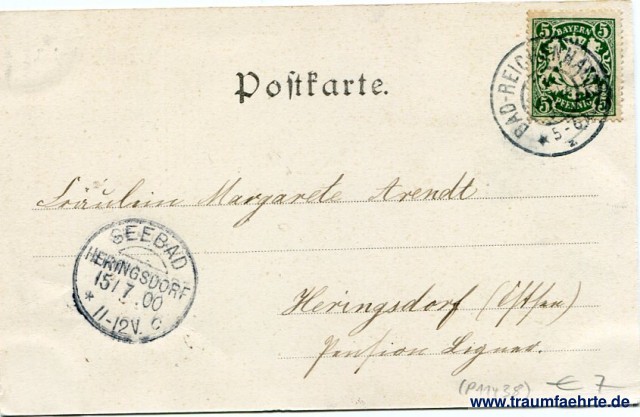 5 BAYERN 5
5 PFENNIG 5
BAD-REICHENHALL
5-6
Postkarte.
Fräulein Margarete Arendt
SEEBAD
HERINGSDORF
15/7 00
* 11-12V. c
Heringsdorf (Ostsee)
Pension
€ 7
www.traumfaehrte.de